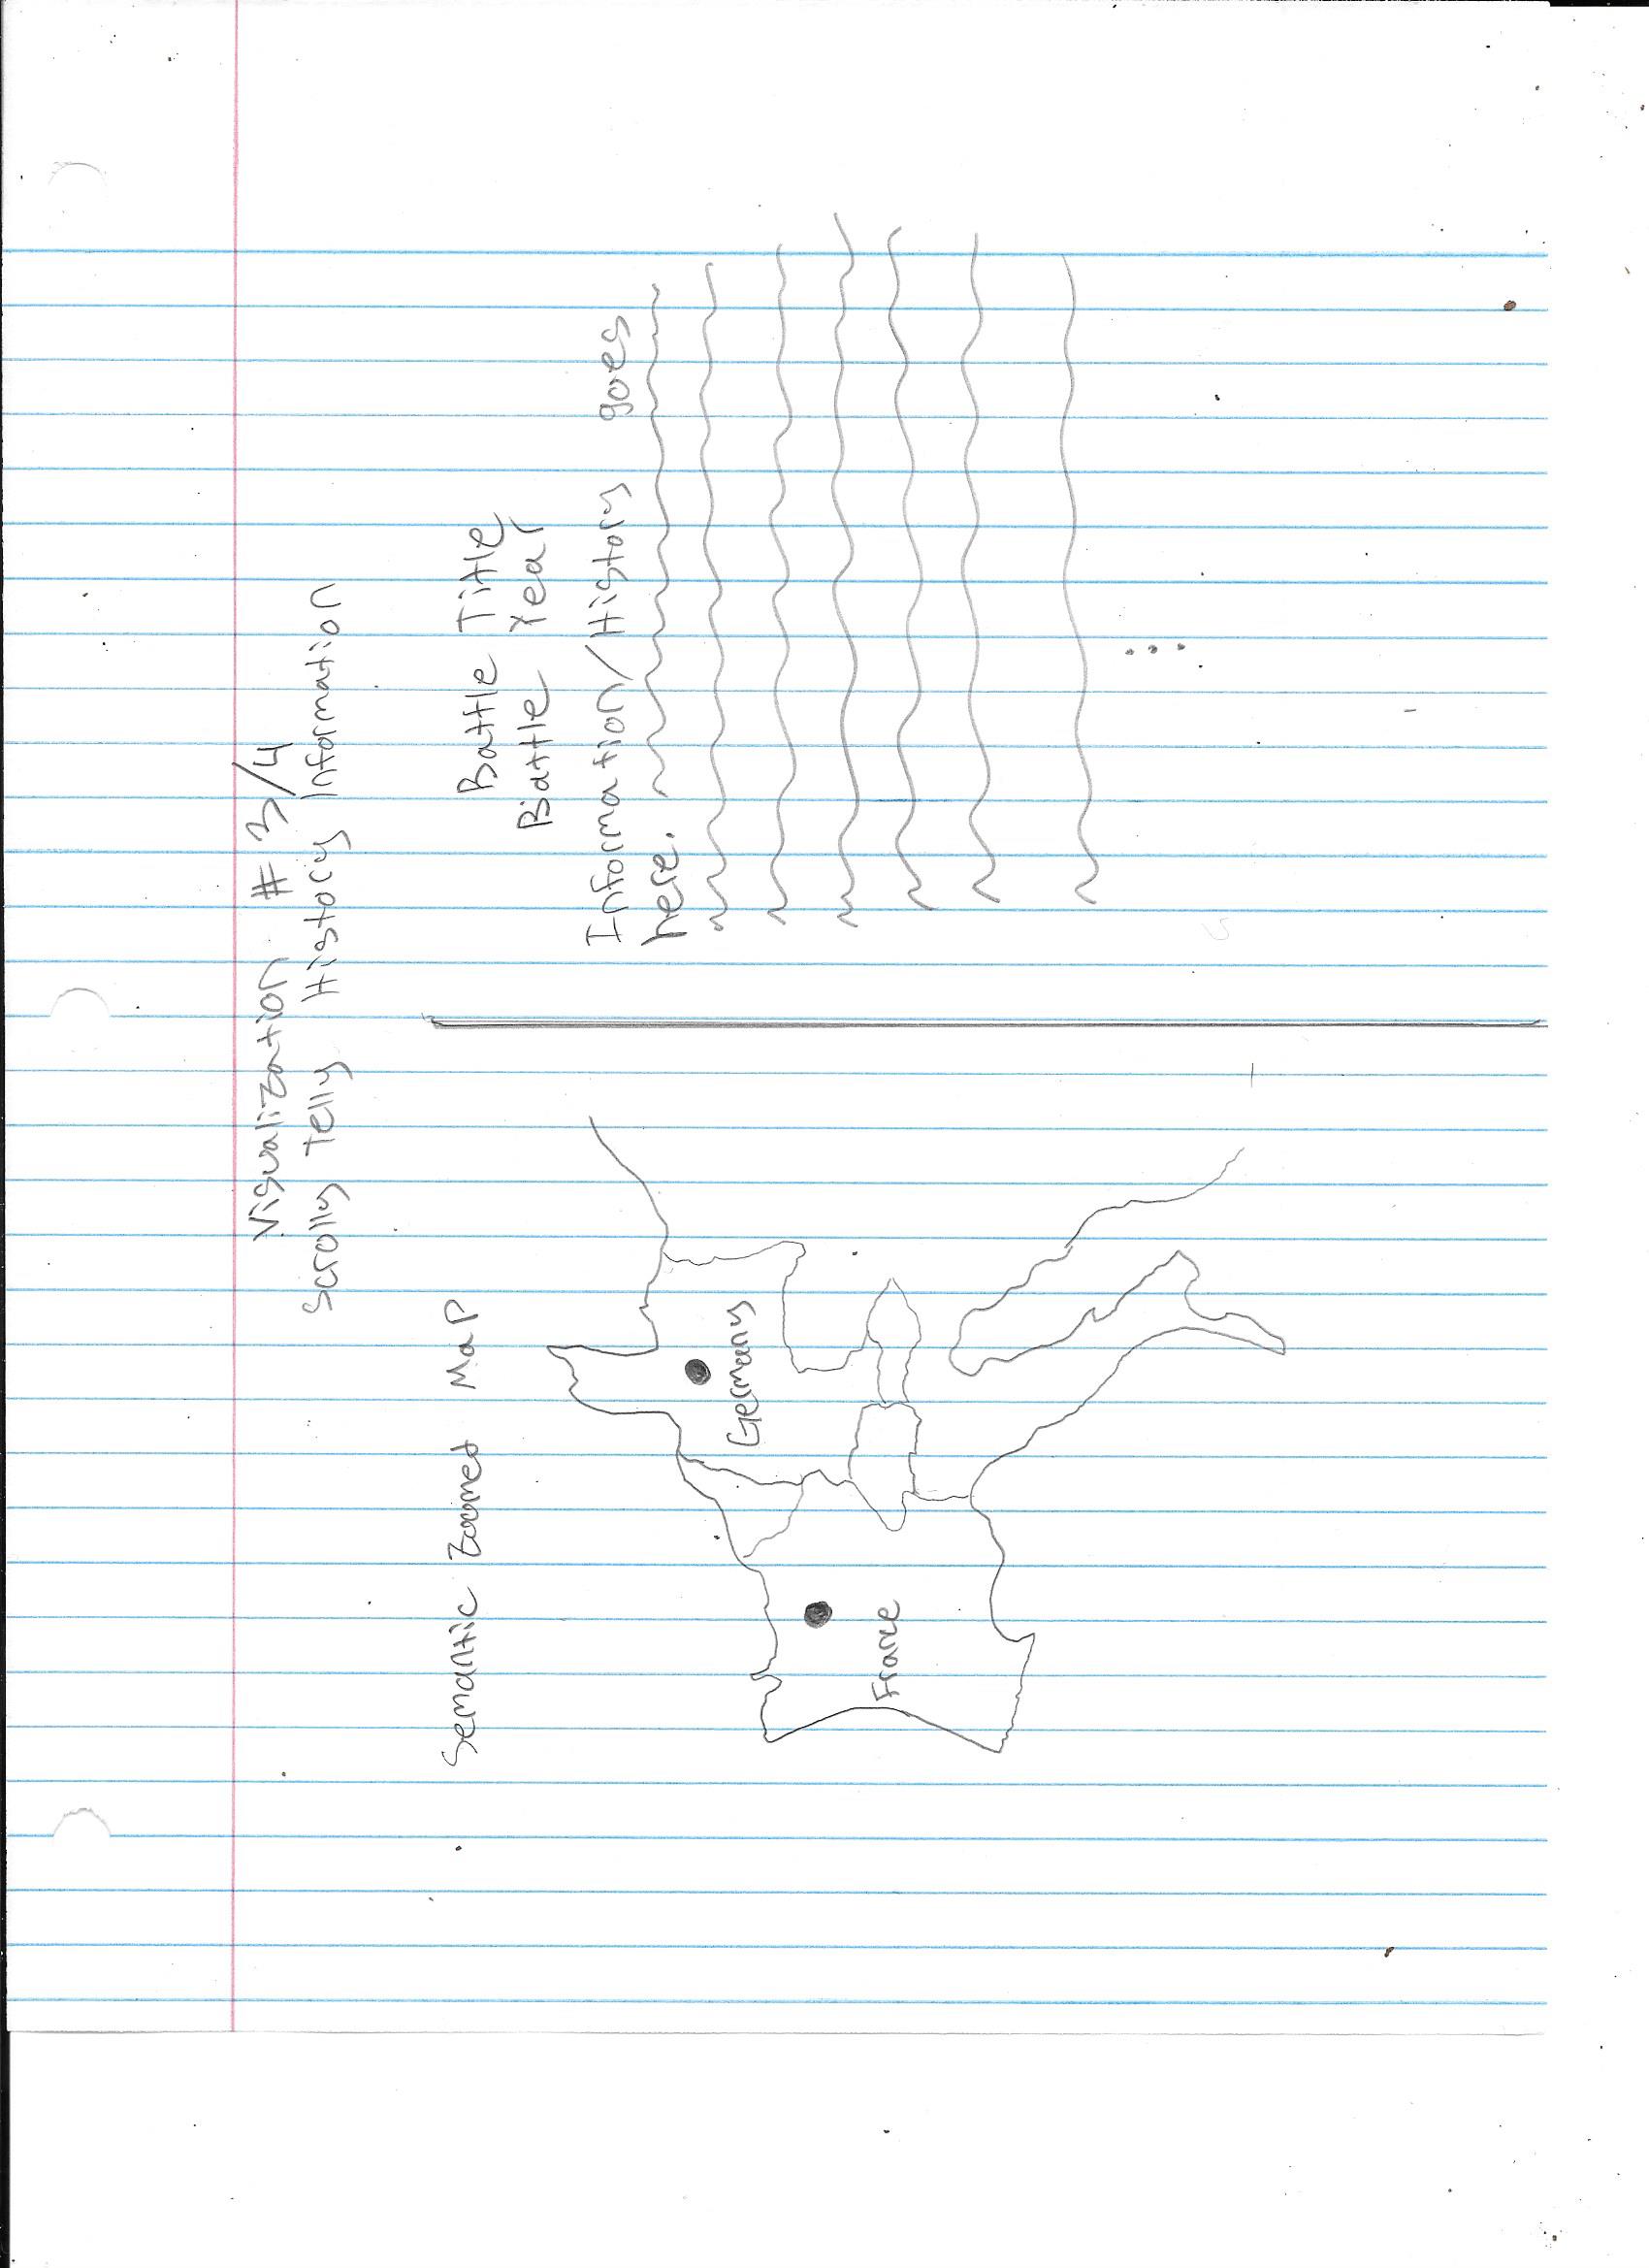 Visualization #3/4
Scrolly telly History Information
Semantic Zoomed Map
Germany
France
Battle Title
Battle Year
Information/History goes
here.
...